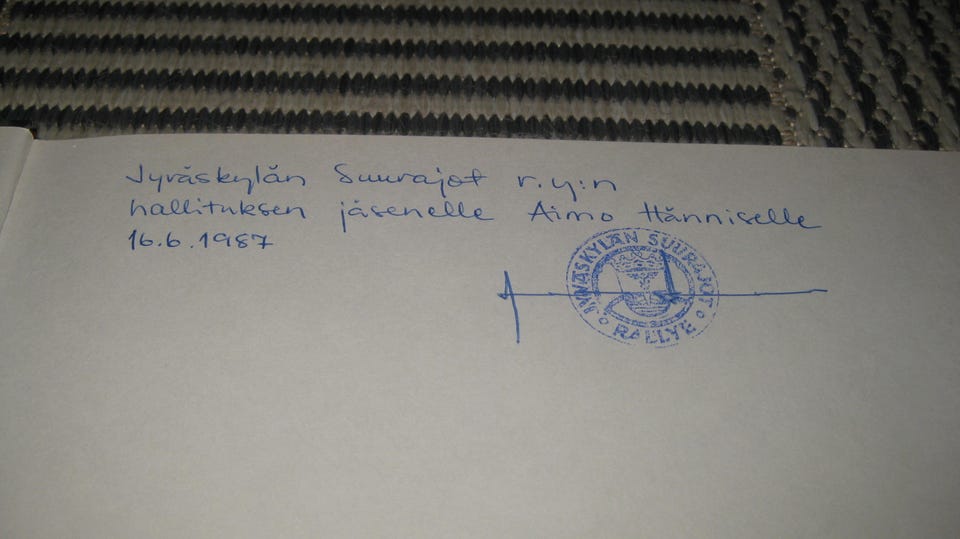 Jyväskylän Suurajot r.y:n
hallituksen jäsenelle Aimo Hänniselle
16.6.1987
JYVÄSKYLÄN SUURAJOT
RALLYE